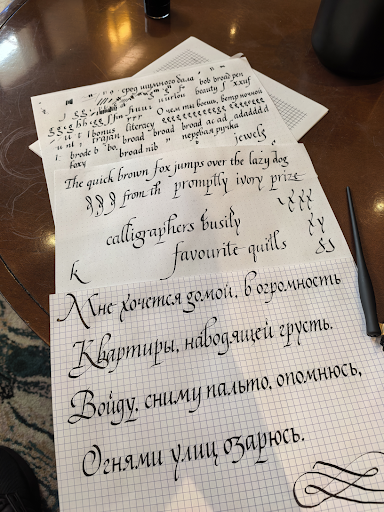 сред шумного бала bob broad pen
beauty fox
О чем ты воешь, ветр ночной
bonus literacy
trajan broad broad broad ad ad adaddd d
brode bo broad nib первая ручка
foxy jewels
The quick brown fox jumps over the lazy dog
from th promptly ivory prize
calligraphers busily
favourite quills
k
Мне хочется домой, в огромность
Квартиры, наводящей грусть.
Войду, сниму пальто, опомнюсь,
Огнями улиц озарюсь.